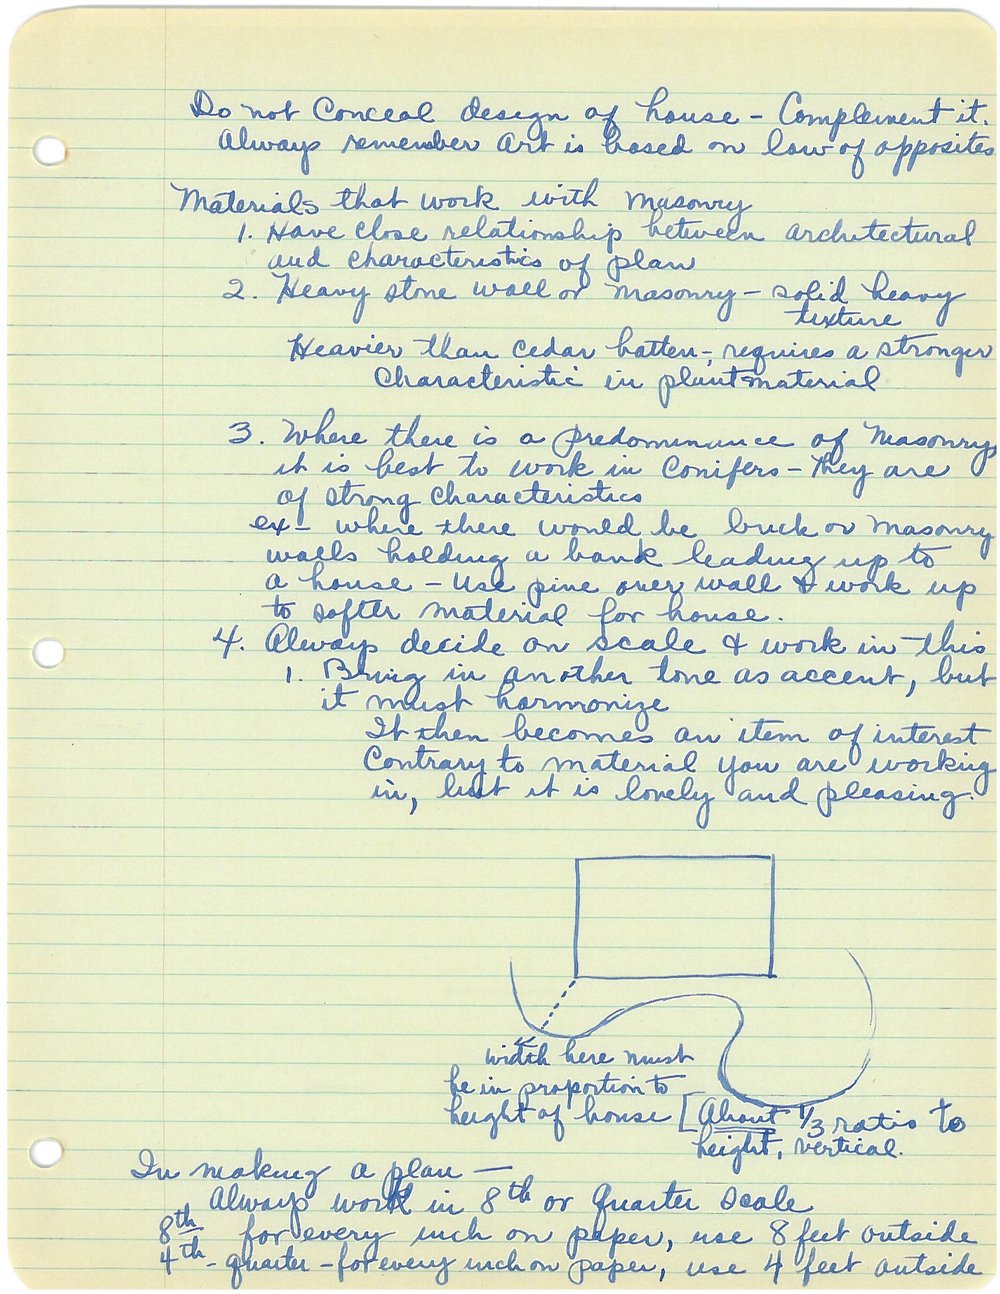 Do not Conceal design of house - Complement it.
Always remember Art is based on law of opposites
Materials that work with masonry
1. Have close relationship between architectural
and characteristics of plan
2. Heavy stone wall or masonry - solid heavy
texture
Heavier than cedar batten-, requires a stronger
Characteristic in plant material
3. Where there is a predominance of Masonry,
it is best to work in Conifers - They are
of strong characteristics
ex - where there would be brick or masonry
walls holding a bank leading up to
a house - Use pine over wall & work up
to softer material for house.
4. Always decide on scale & work in this
1. Bring in another tone as accent, but
it must harmonize
It then becomes an item of interest
Contrary to material you are working
in, but it is lovely and pleasing.
width here must
be in proportion to
height of house [About 1/3 ratio to
height, vertical.
In making a plan —
Always work in 8th or Quarter Scale
8th for every inch on paper, use 8 feet outside
4th - quarter - for every inch on paper, use 4 feet outside